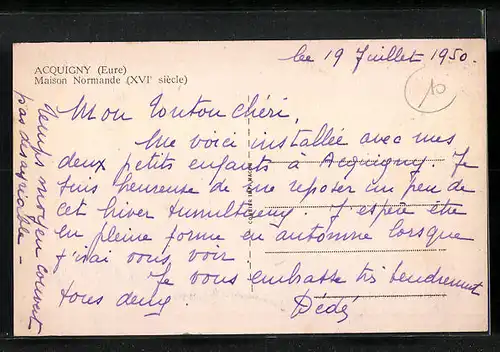 ACQUIGNY (Eure)
Maison Normande (XVIe siècle)
le 19 Juillet 1950.
10
Mon Tonton Chéri,
Me voici installée avec mes
deux petits enfants à Acquigny. Je
suis heureuse de me reposer un peu de
cet hiver tumultueux. J'espère être
en pleine forme en automne lorsque
j'irai vous voir
Je vous embrasse très tendrement
tous deux.
Dédé
temps moyen couvert
pas désagréable –